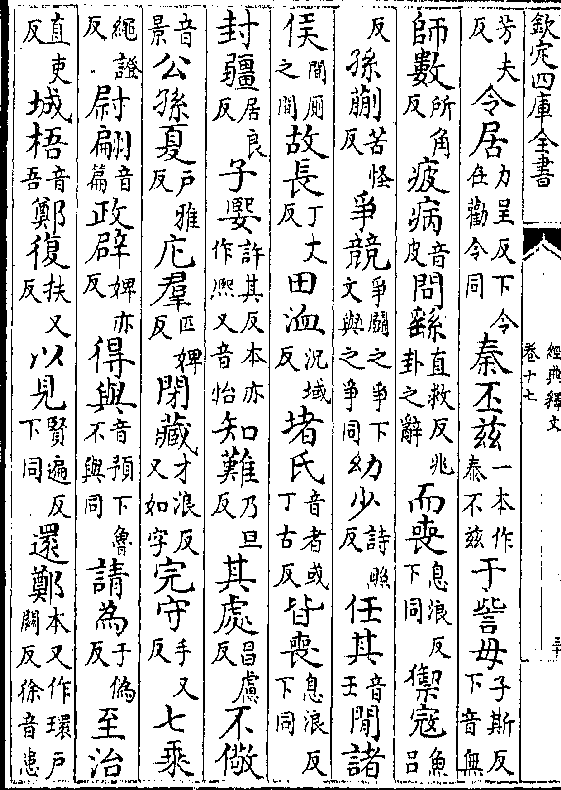 欽定四庫全書
經典釋文
卷十七
芳夫反令居力呈反下令在勸令同秦丕兹一本作秦不兹于訾毋子斯反下音無
師數所角反疲病音皮問繇直救反兆卦之辭而喪息浪反下同禦寇魚呂
反孫蒯苦怪反爭競爭鬭之爭下文與之爭同幼少詩照反任其音壬閒諸
侯間厠之間故長丁丈反田洫況域反堵氏音者或丁古反皆喪息浪反下同
封疆居良反子許其反本亦作熈又音怡知難乃旦反其處昌慮反不儆
音景公孫夏戶雅反庀羣匹婢反閉藏才浪反又如字完守手又反七乘
繩證反尉翩音篇政辟婢亦反得與音預下魯不與同請為于偽反至治
直吏反城梧音吾鄭復扶又反以見賢遍反下同還鄭本又作環戶關反徐音患